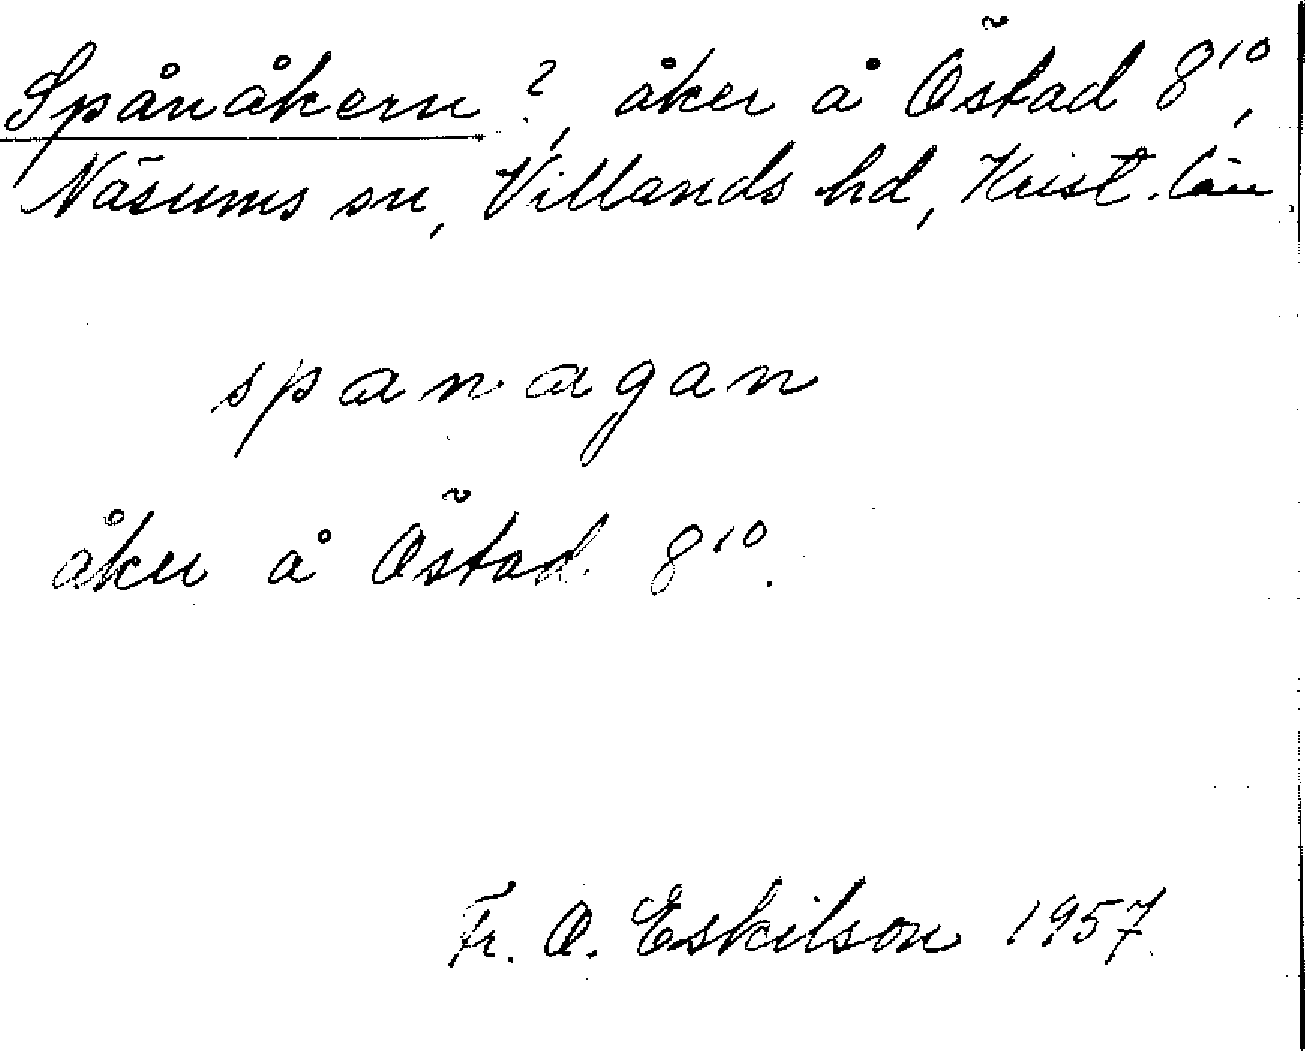 Spånåkern ?, åker å Östad 8¹⁰,
Näsums sn, Villands hd, Krist. län
spanagan
åker å Östad 8¹⁰.
Fr. O. Eskilson 1957